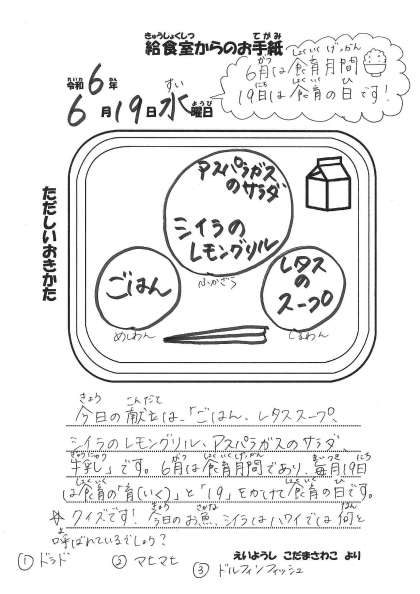 給食室からのお手紙
きゅうしょくしつ てがみ
令和6年
れいわ ねん
6月19日水曜日
がつ にち すい ようび
6月は食育月間
がつ しょくいくげっかん
19日は食育の日です!
にち しょくいく ひ
ただしいおきかた
アスパラガス
のサラダ
シイラの
レモングリル
ふかざら
ごはん
めしわん
レタス
の
スープ
しるわん
きょう こんだて
今日の献立は、「ごはん、レタススープ、
シイラのレモングリル、アスパラガスのサラダ
ぎゅうにゅう がつ しょくいくげっかん まいつき にち
牛乳」です。6月は食育月間であり、毎月19日
しょくいく いく しょくいく ひ
は食育の「育(いく)」と「19」をかけて食育の日です。
きょう さかな なん
☆クイズです!今日のお魚、シイラはハワイでは何と
よ
呼ばれているでしょう?
えいようし こだまさわこ より
①ドラド ②マヒマヒ ③ドルフィンフィッシュ